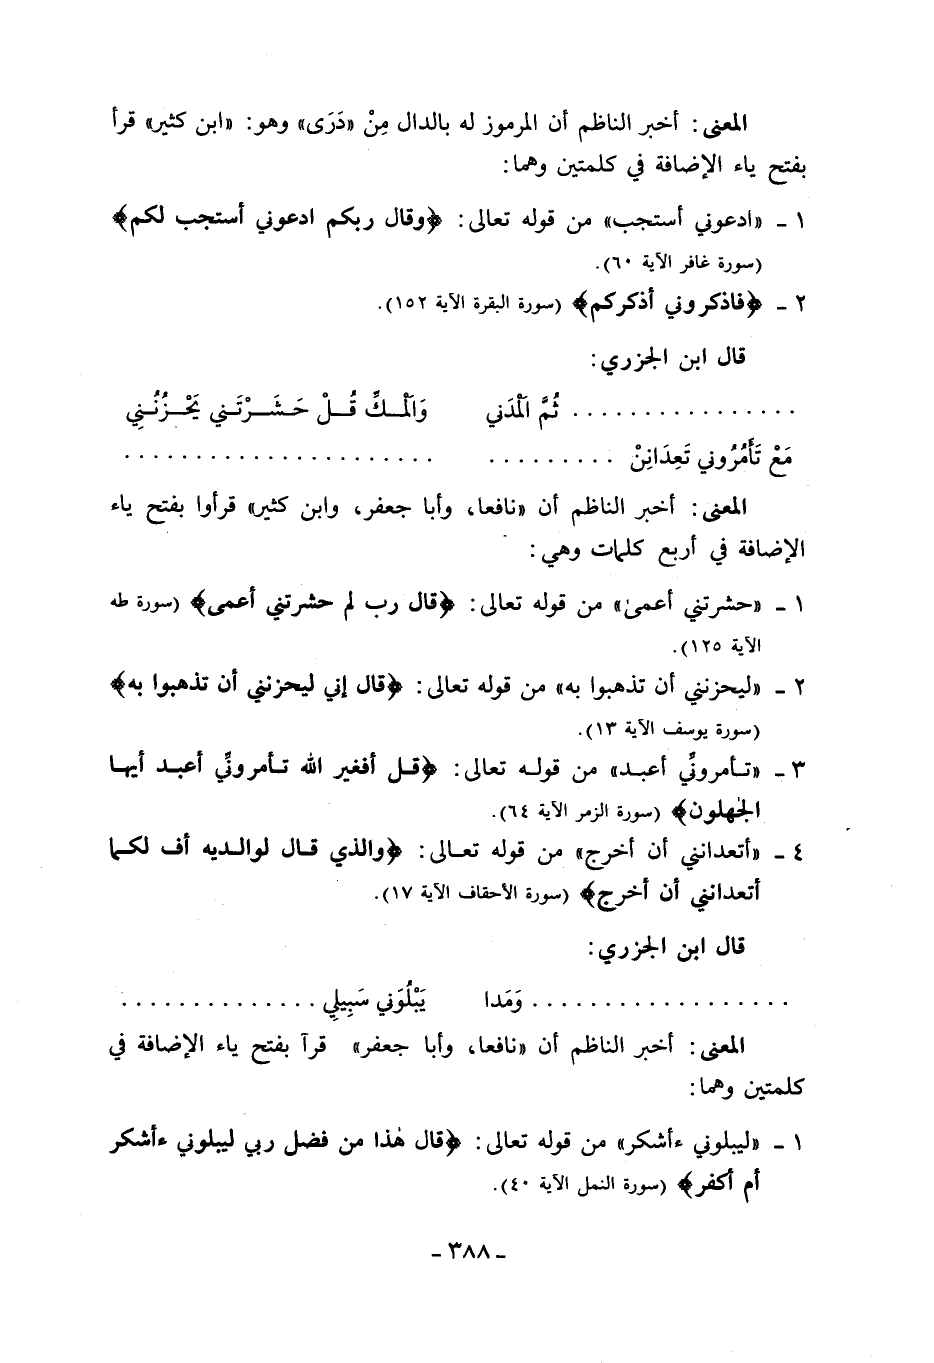 المعنى: أخبر الناظم أن المرموز له بالدال مِنْ «دَرَى» وهو: «ابن كثير» قرأ
بفتح ياء الإضافة في كلمتين وهما:
١ ـ «ادعوني أستجب» من قوله تعالى: ﴿وقال ربكم ادعوني أستجب لكم﴾
(سورة غافر الآية ٦٠).
٢ ـ ﴿فاذكروني أذكركم﴾ (سورة البقرة الآية ١٥٢).
قال ابن الجزري:
................ ثُمَّ الْمَدَنِي وَالْمَـكِّ قُـلْ حَشَـرْتَـنِي يَحْـزُنُـنِي
مَعْ تَأْمُرُونِي تَعِدَانِنْ ......... ......................
المعنى: أخبر الناظم أن «نافعا، وأبا جعفر، وابن كثير» قرأوا بفتح ياء
الإضافة في أربع كلمات وهي:
١ ـ «حشرتني أعمىٰ» من قوله تعالى: ﴿قال رب لم حشرتني أعمى﴾ (سورة طه
الآية ١٢٥).
٢ ـ «ليحزنني أن تذهبوا به» من قوله تعالى: ﴿قال إني ليحزنني أن تذهبوا به﴾
(سورة يوسف الآية ١٣).
٣ ـ «تـأمرونِّي أعبـد» من قولـه تعالى: ﴿قـل أفغير الله تـأمرونِّي أعبـد أيهـا
الجٰهلون﴾ (سورة الزمر الآية ٦٤).
٤ ـ «أتعدانني أن أخرج» من قوله تعـالى: ﴿والذي قـال لوالـديه أف لكـما
أتعدانني أن أخرج﴾ (سورة الأحقاف الآية ١٧).
قال ابن الجزري:
.................. وَمَدا يَبْلُوَنِي سَبِيلِي ..............
المعنى: أخبر الناظم أن «نافعا، وأبا جعفر» قرآ بفتح ياء الإضافة في
كلمتين وهما:
١ ـ «ليبلوني ءأشكر» من قوله تعالى: ﴿قال هٰذا من فضل ربي ليبلوني ءأشكر
أم أكفر﴾ (سورة النمل الآية ٤٠).
ـ ٣٨٨ ـ